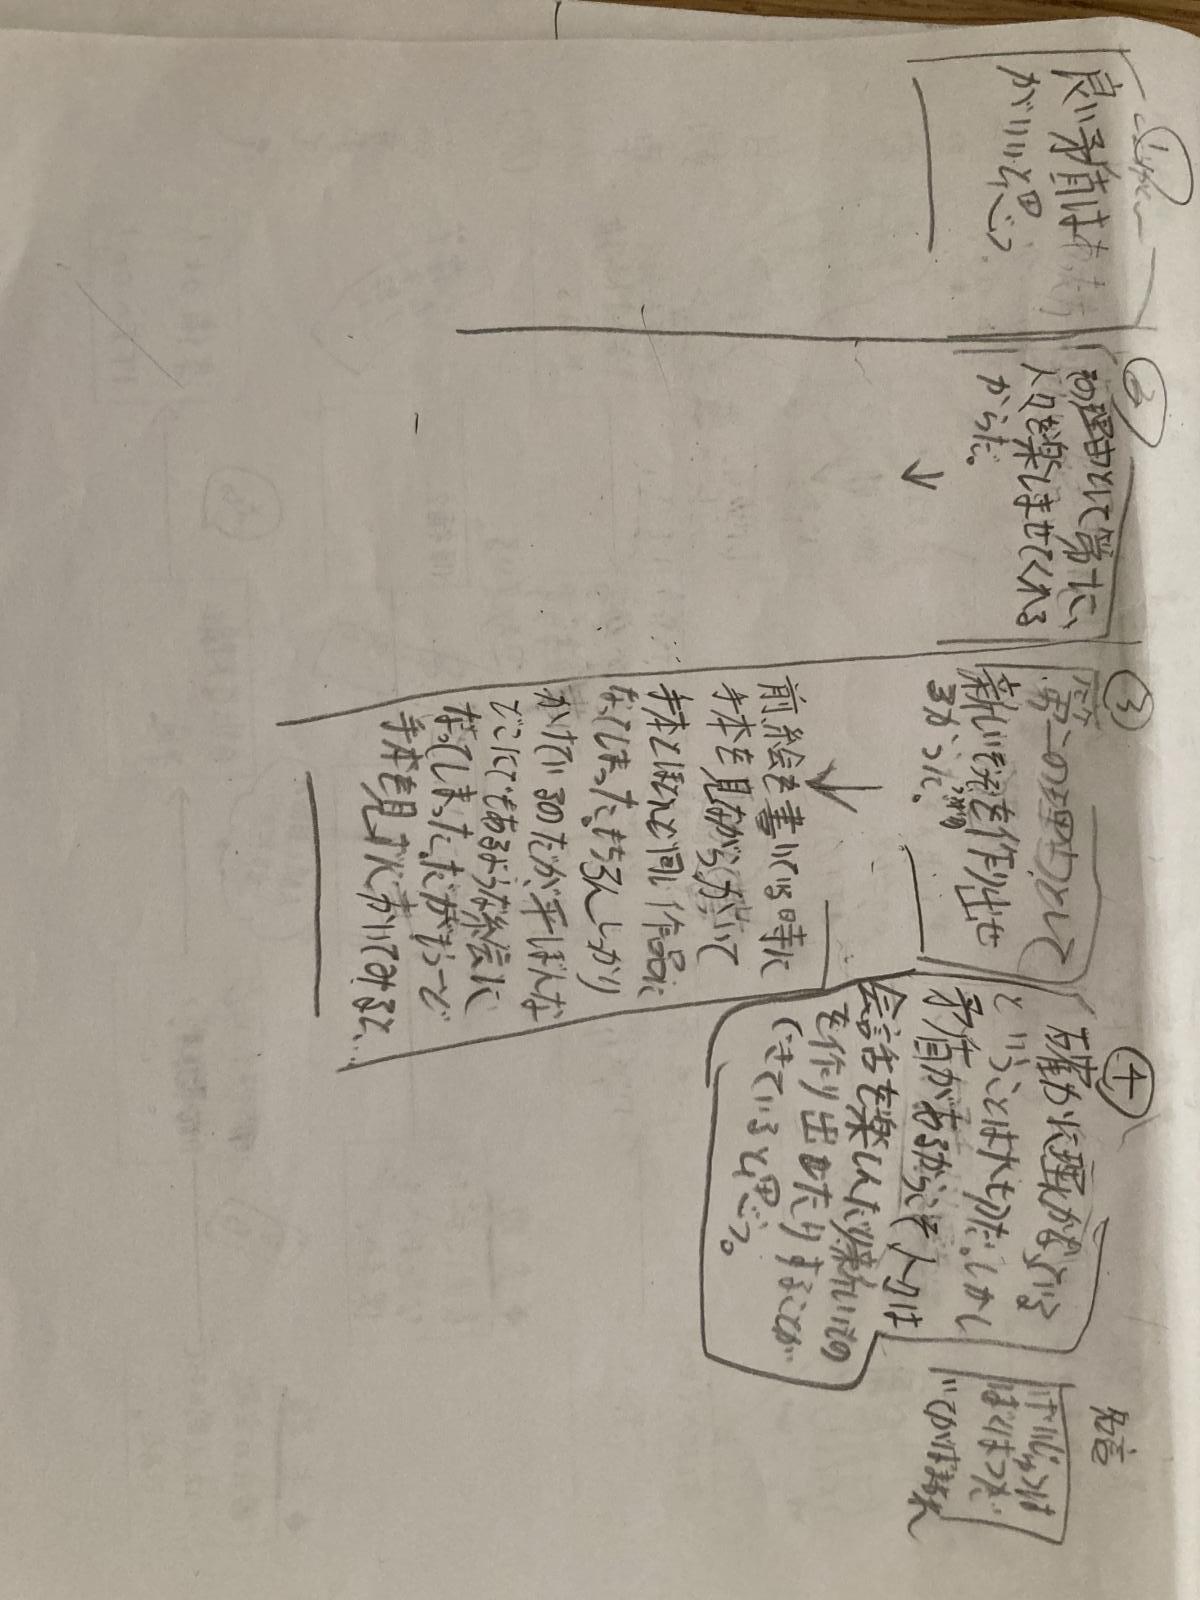 ①
良い矛盾はあった方
がいいと思う
②
の理由として常に、
人々を楽しませてくれる
からだ。
↓
③
第二の理由として
新しい発を作り出せ
るからだ。
↓
前絵を書いている時に
手本を見ながらかいて
手本とほとんど同じ作品に
なってしまった。もちろんしっかり
かけているのだが、平ぼんな
どこにでもあるような絵に
なってしまった。だがもう一ど
手本を見ずにかいてみると…
④
確かに理かなっている
ということは大切だ。しかし
矛盾があるからこそ人々は
会話を楽しんだり新しいもの
を作り出したりすることが
できていると思う。
名言